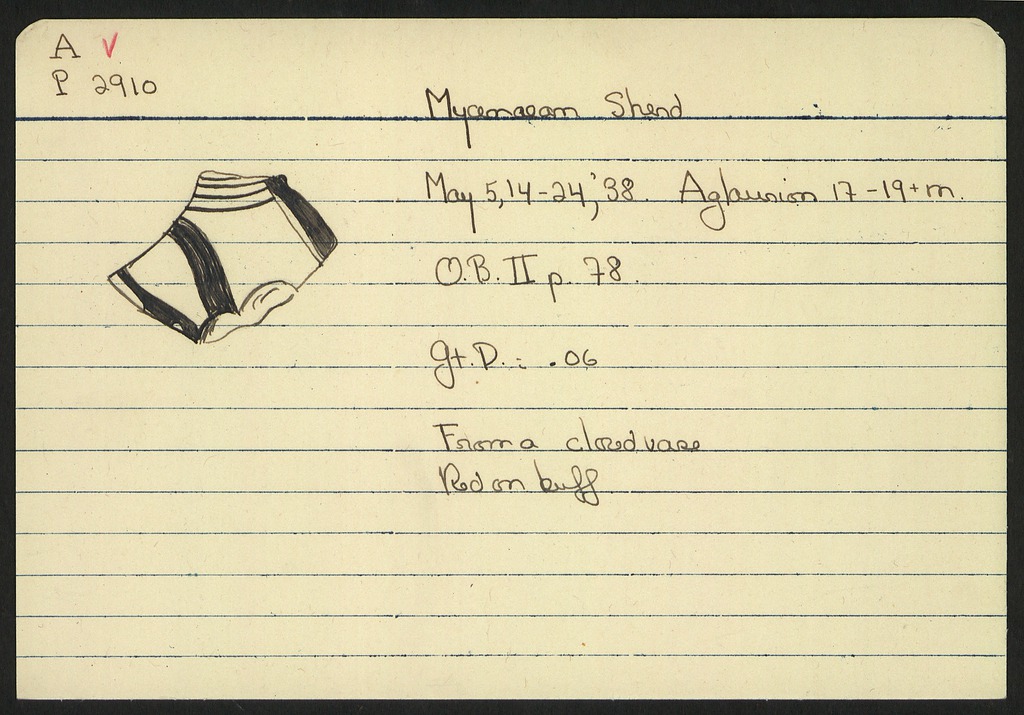 A V
P 2910
Mycenaean Sherd
May 5, 14-24, '38. Aglaurion 17-19+m.
O.B. II p. 78.
Gt. D.: .06
From a closed vase
Red on buff